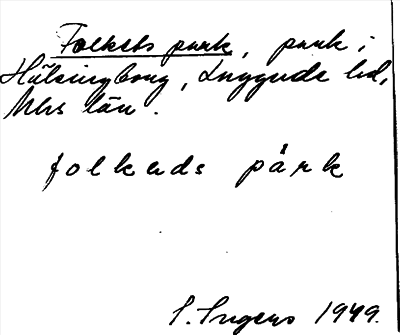 Folkets park, park i
Hälsingborg, Luggude hd,
Mhs län.
folkəds park
S. Ingers 1949.